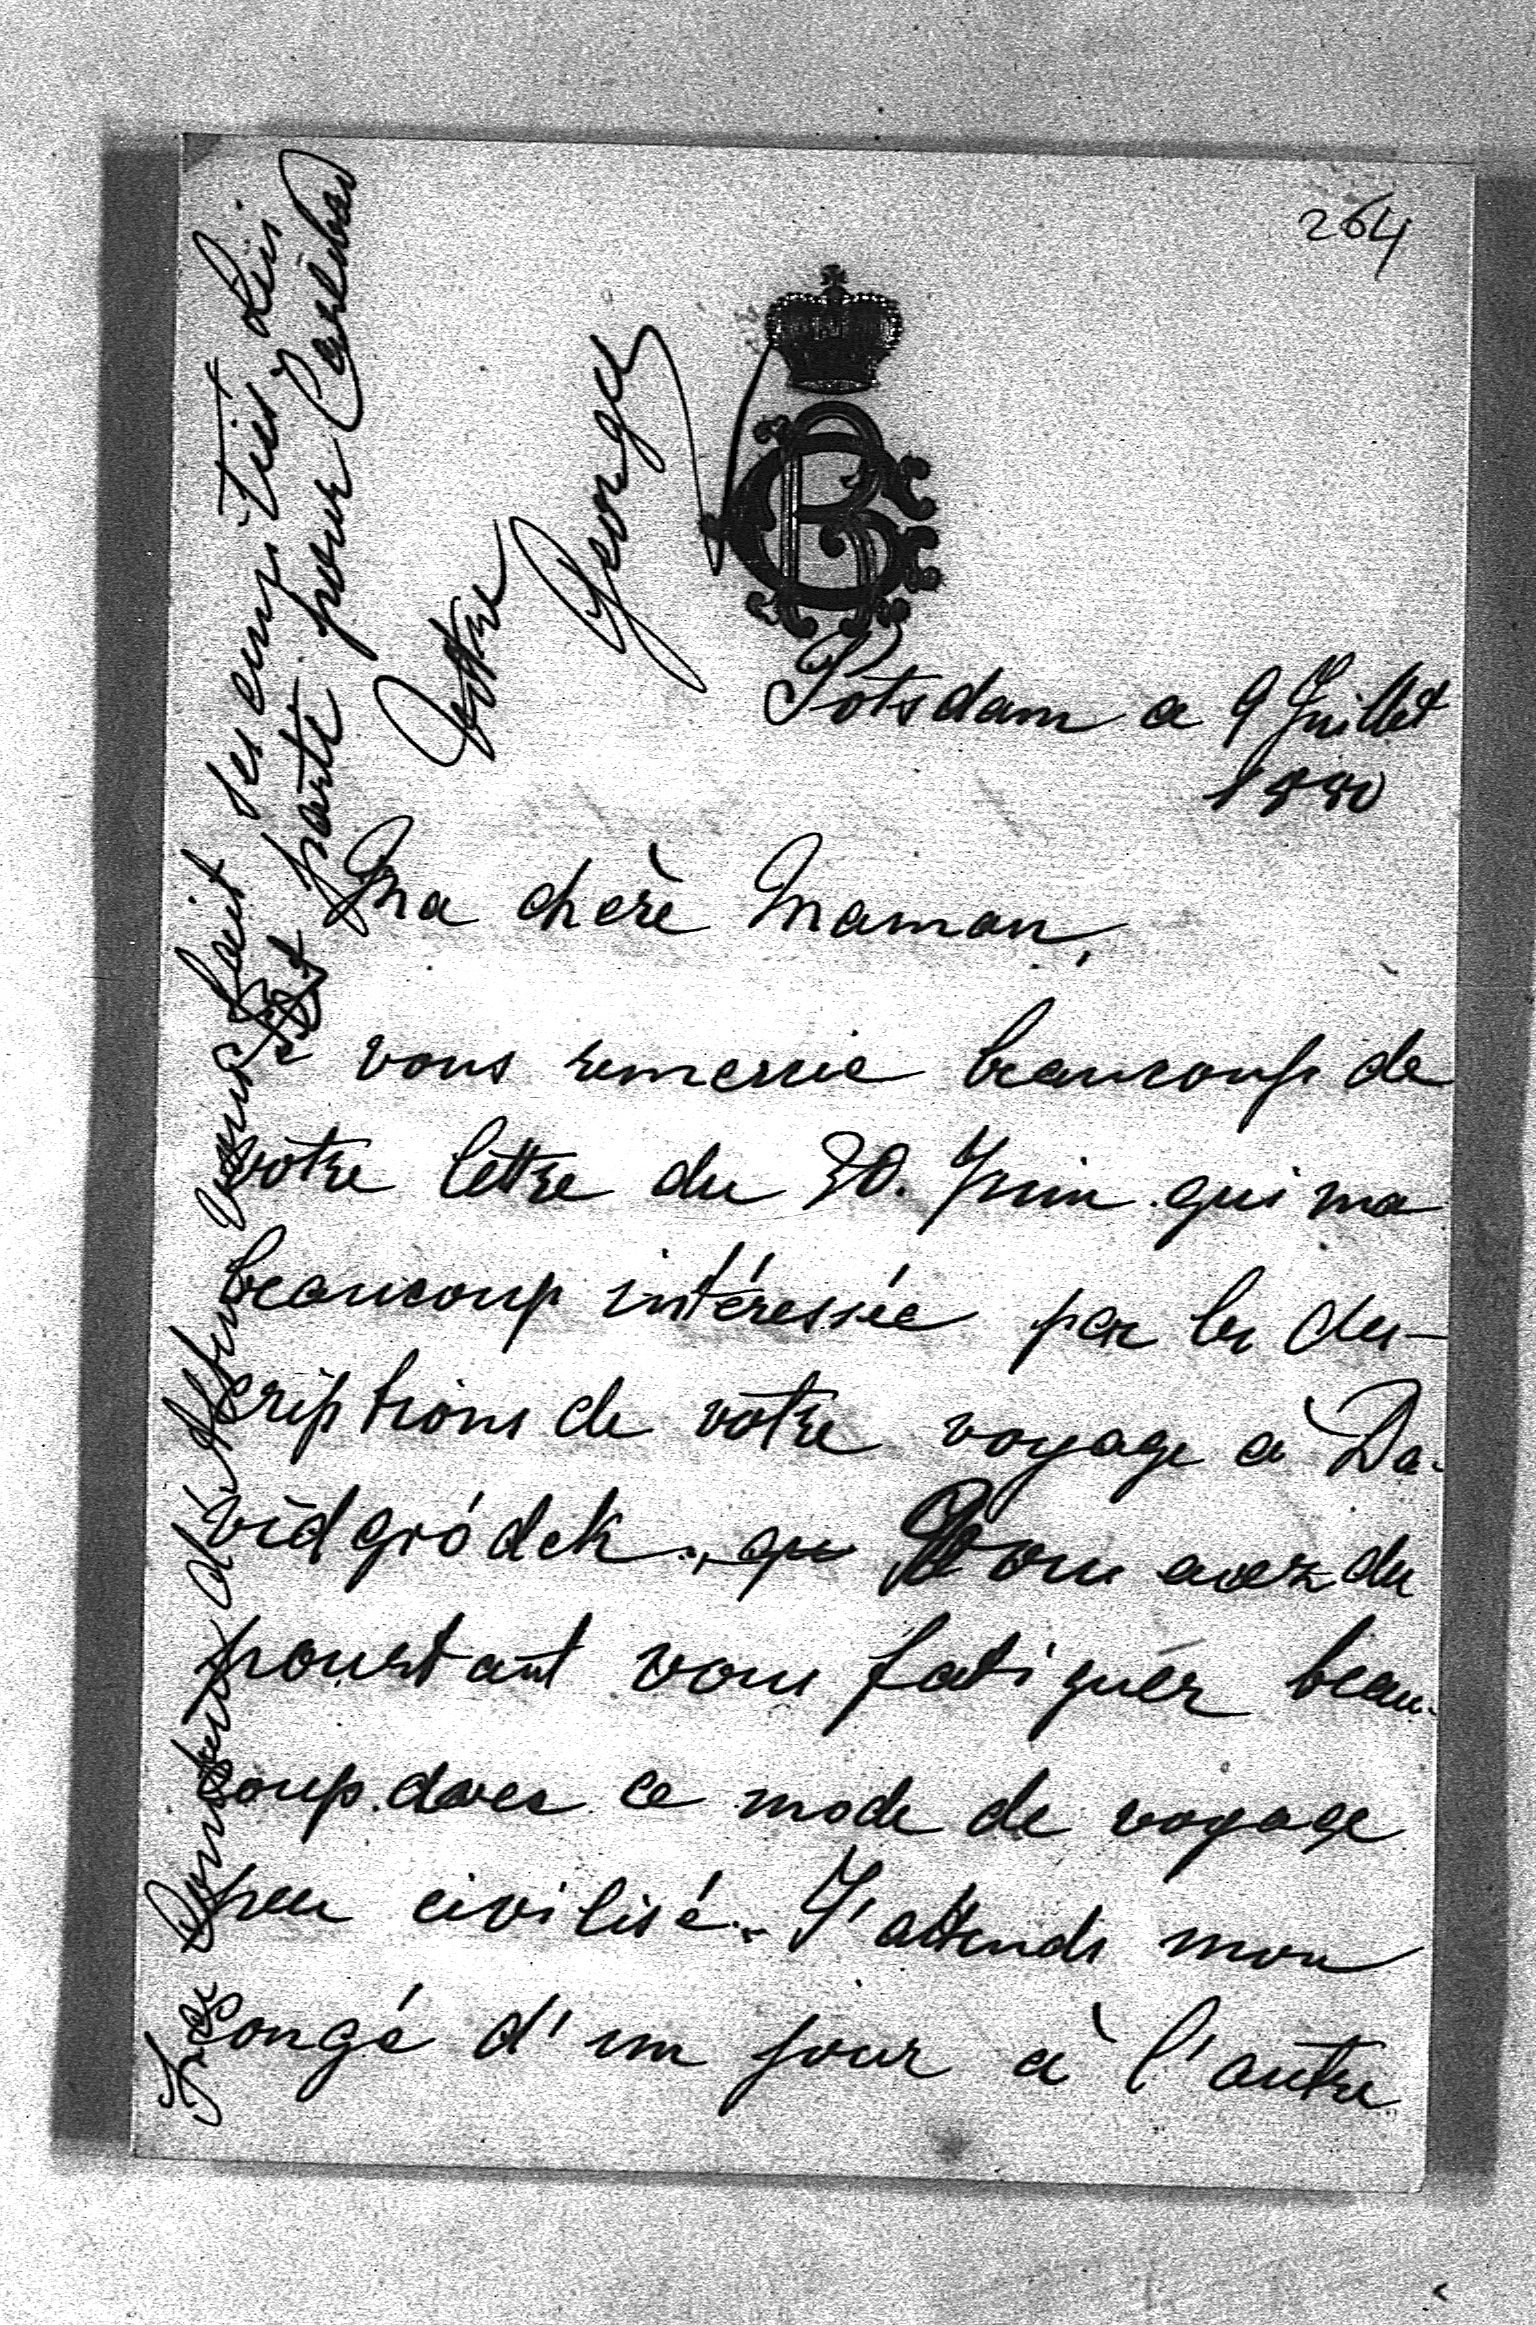 264
Potsdam a 9 Juillet
1880
Ma chère Maman,
Je vous remercie beaucoup de
votre lettre du 30. Juin qui ma
beaucoup intéressée par les des-
criptions de votre voyage à Da-
vidgródek., Vous avez du
pourtant vous fatiguer beau-
coup. dans ce mode de voyage
peu civilisé. J'attends mon
congé d'un jour à l'autre
vous fait ses amitiés. Lui
est parti pour Carlsbad
Votre
Georges